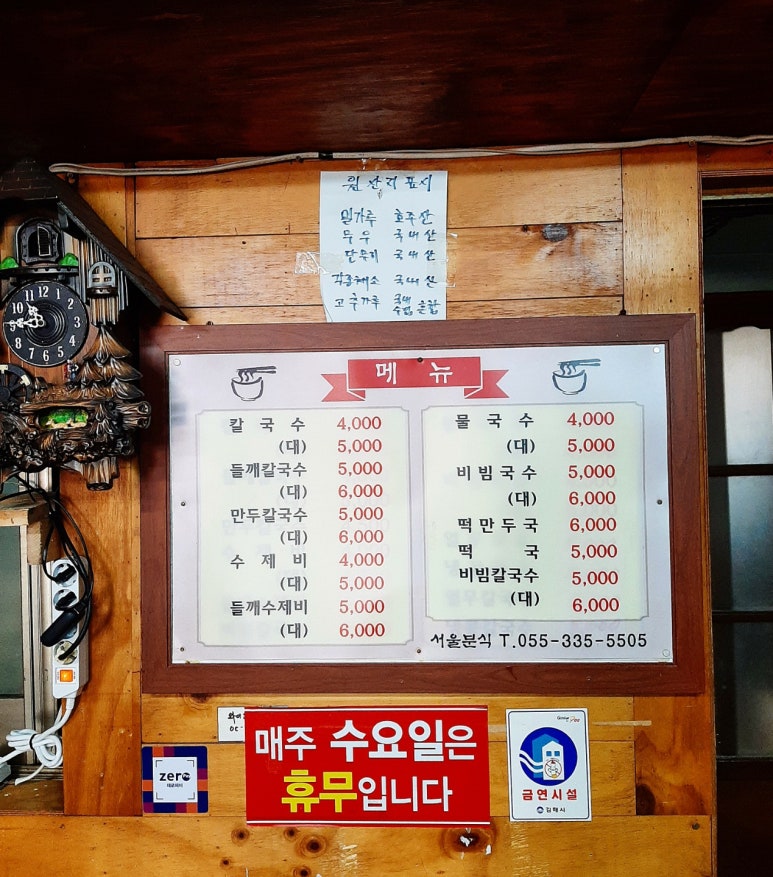 원산지표시
밀가루 호주산
무우 국내산
단무지 국내산
각종채소 국내산
고추가루 국내 수입 혼합
12 1 2 3 4 5 6 7 8 9 10 11
메뉴
칼국수 4,000
(대) 5,000
들깨칼국수 5,000
(대) 6,000
만두칼국수 5,000
(대) 6,000
수제비 4,000
(대) 5,000
들깨수제비 5,000
(대) 6,000
물국수 4,000
(대) 5,000
비빔국수 5,000
(대) 6,000
떡만두국 6,000
떡국 5,000
비빔칼국수 5,000
(대) 6,000
서울분식 T.055-335-5505
매주 수요일은
휴무입니다
zero
제로페이
금연시설
김해시